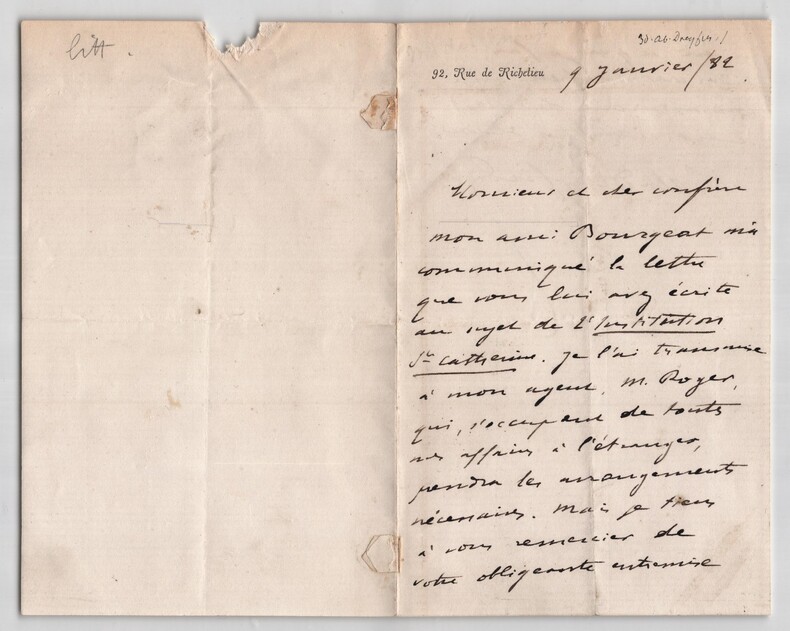 litt.
Ab. Dreyfus
92, Rue de Richelieu
9 janvier/82
Monsieur et cher confrère
mon ami Bourgeat m'a
communiqué la lettre
que vous lui avez écrite
au sujet de l'Institution
Ste Catherine. Je l'ai transmise
à mon agent, M. Roger,
qui, s'occupant de toutes
nos affaires à l'étranger,
prendra les arrangements
nécessaires. Mais je tiens
à vous remercier de
votre obligeante entremise